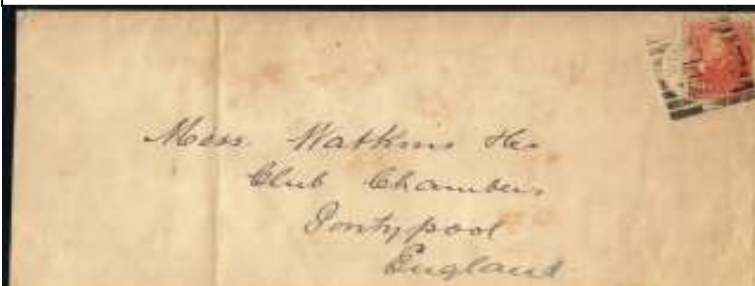 Mess. Watkins
Club Chambers
Pontypool
England